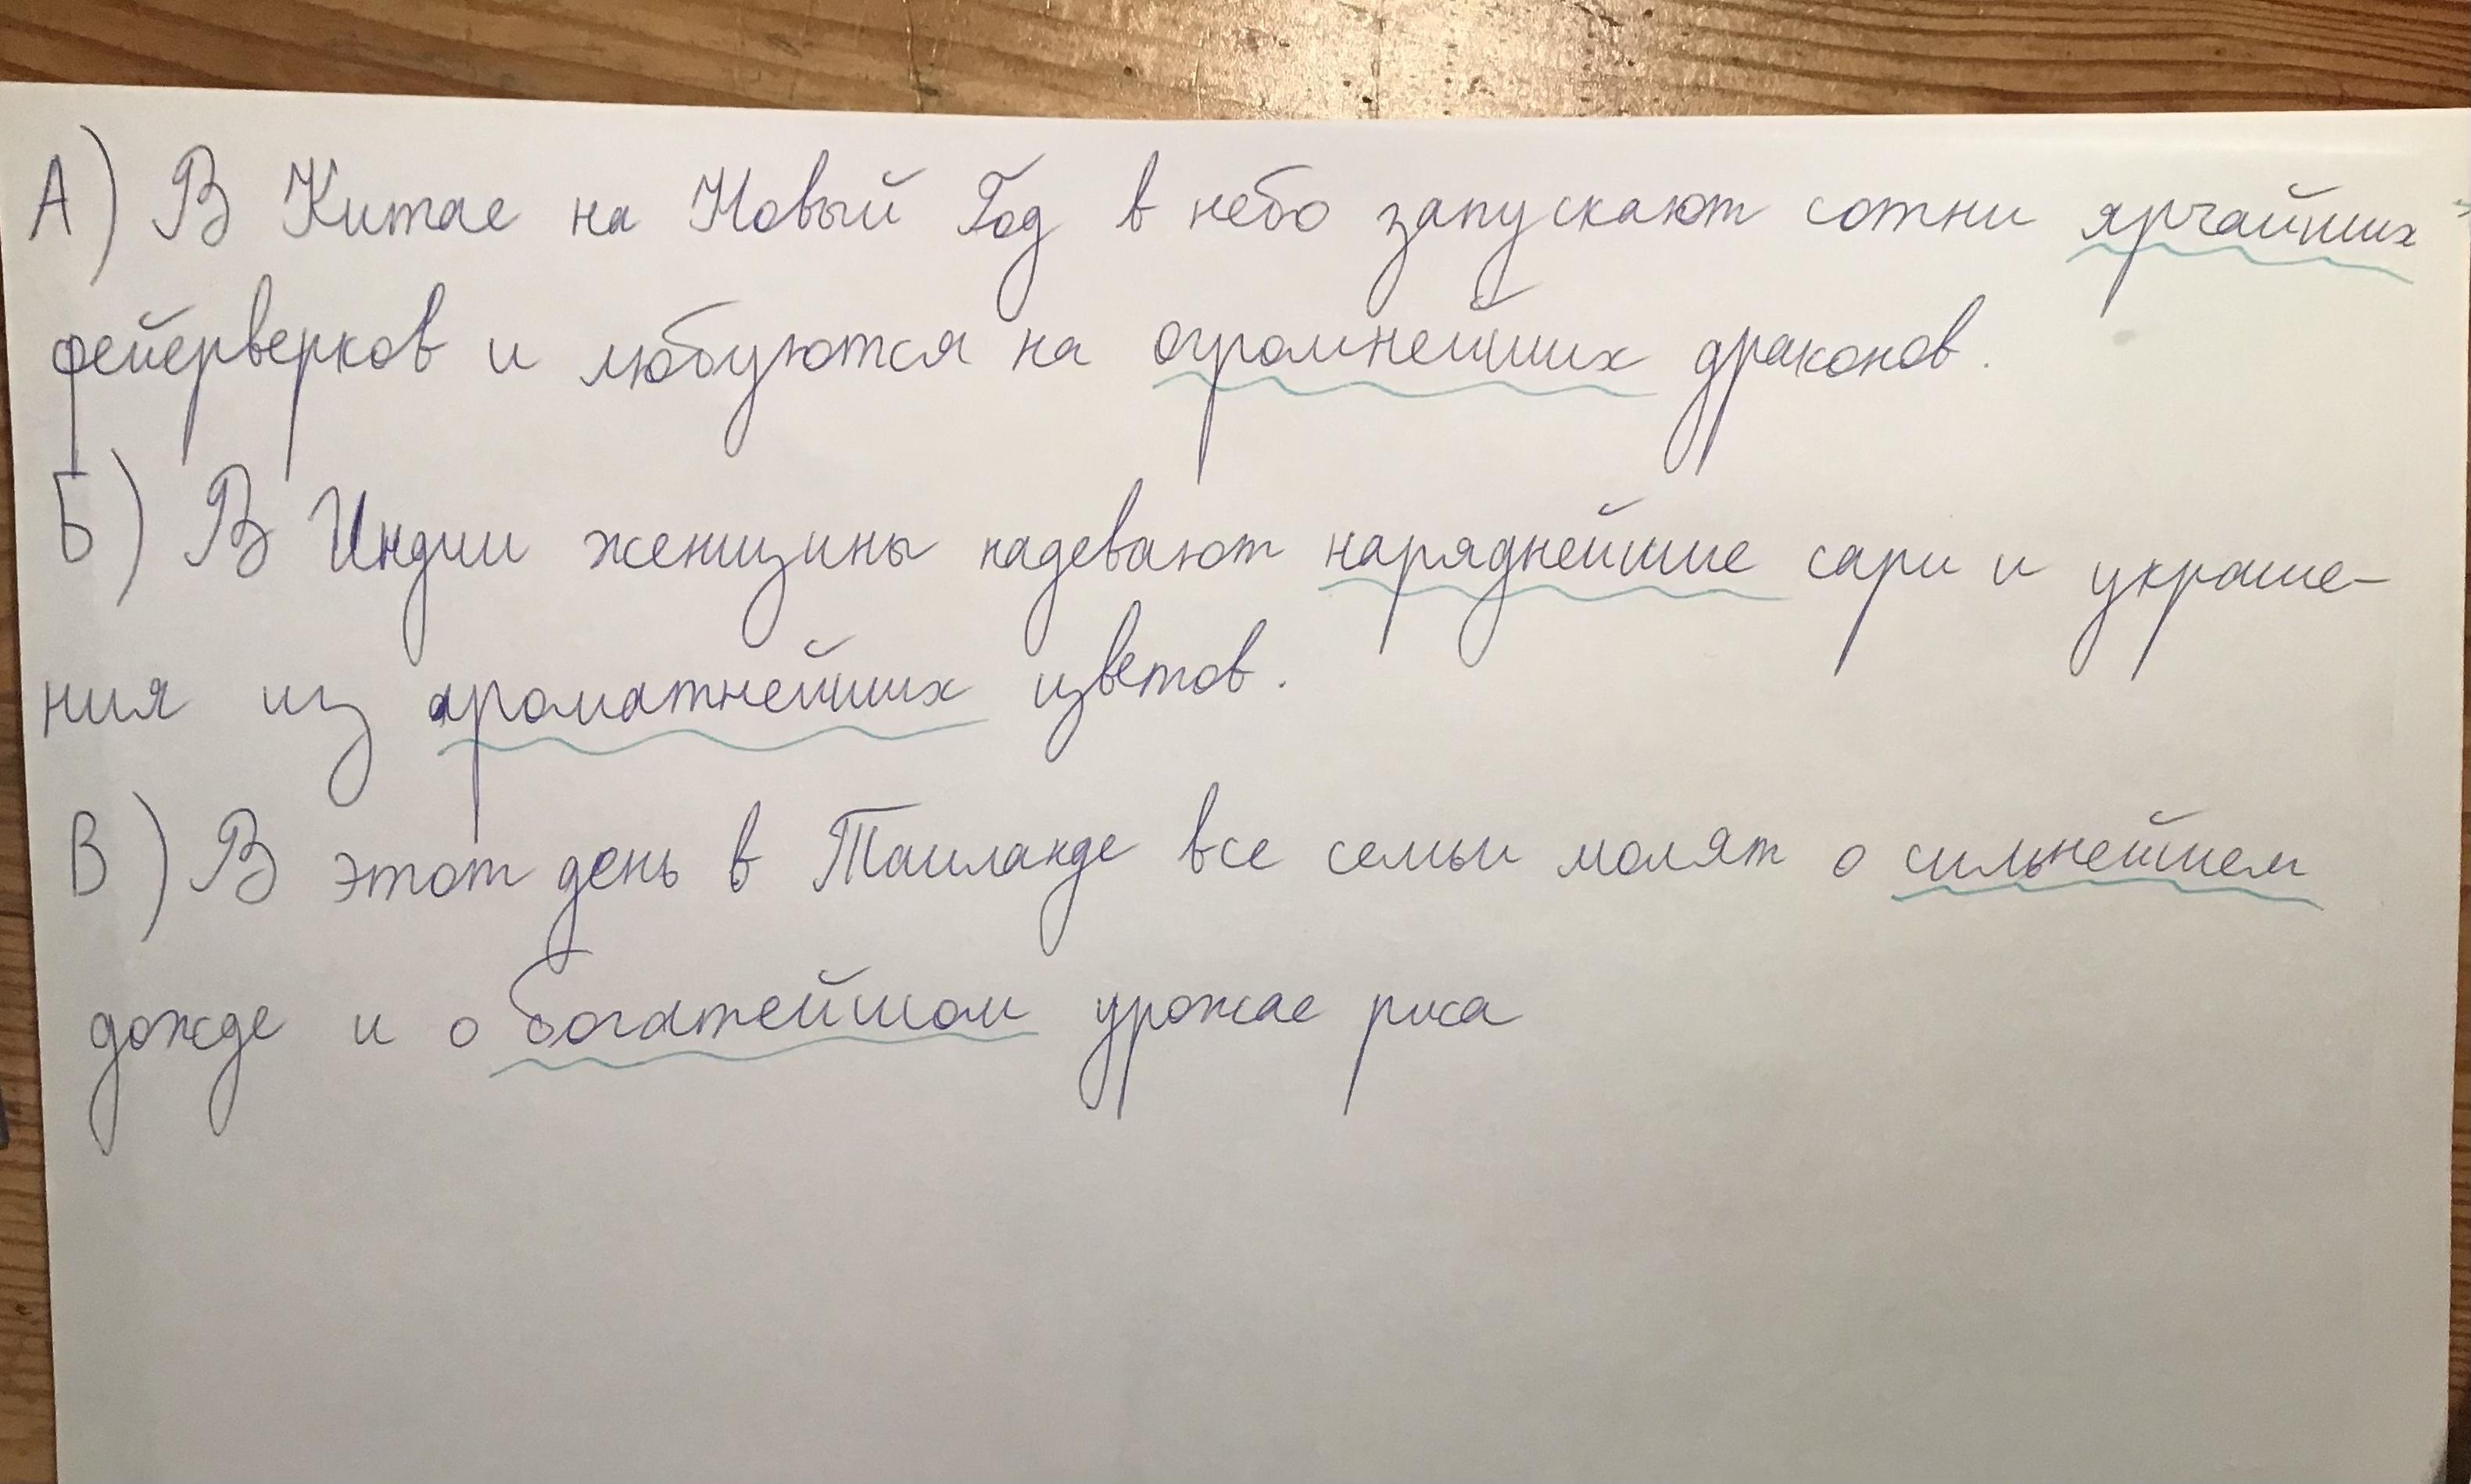 А) В Китае на Новый Год в небо запускают сотни ярчайших
фейерверков и любуются на огромнейших драконов.
Б) В Индии женщины надевают наряднейшие сари и украше-
ния из ароматнейших цветов.
В) В этот день в Таиланде все семьи молят о сильнейшем
дожде и о богатейшом урожае риса